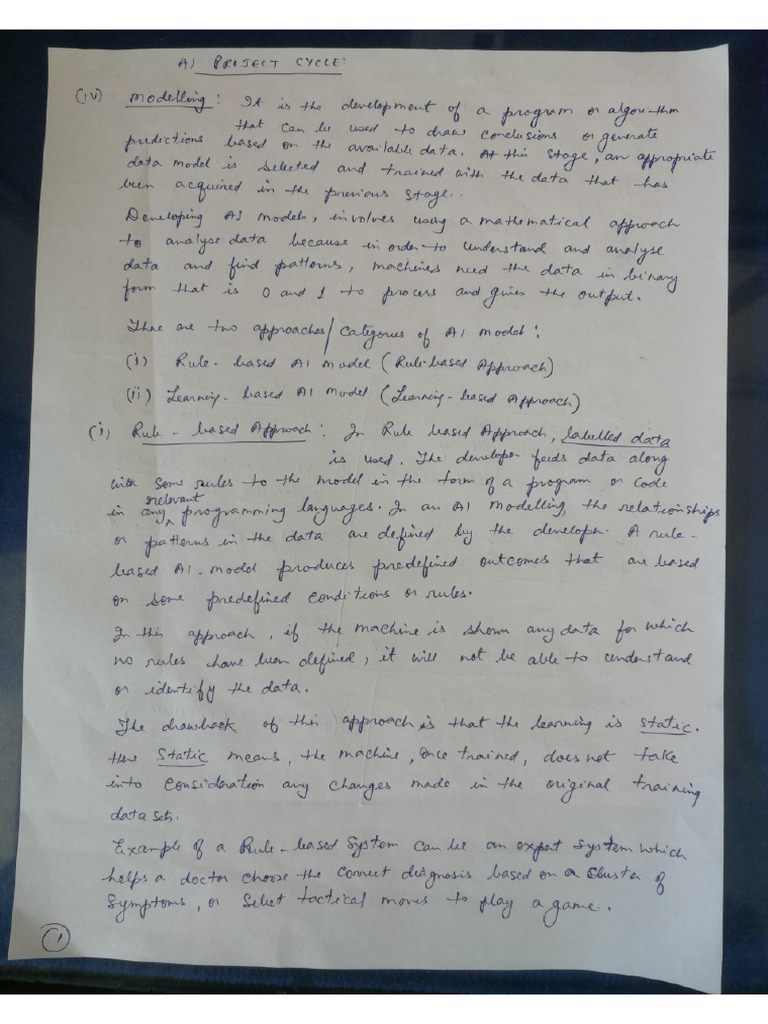 AI PROJECT CYCLE:
(iv) Modelling: It is the development of a program or algorithm
that can be used to draw conclusions or generate
predictions based on the available data. At this stage, an appropriate
data model is selected and trained with the data that has
been acquired in the previous stage.
Developing AI models, involves using a mathematical approach
to analyse data because in order to understand and analyse
data and find patterns, machines need the data in binary
form that is 0 and 1 to process and gives the output.
There are two approaches/categories of AI model:
(i) Rule-based AI Model (Rule-based Approach)
(ii) Learning-based AI Model (Learning-based Approach)
(i) Rule-based Approach: In Rule based Approach, labelled data
is used. The developer feeds data along
with some rules to the model in the form of a program or code
in any relevant programming languages. In an AI modelling, the relationships
or patterns in the data are defined by the developer. A rule-
based AI-model produces predefined outcomes that are based
on some predefined conditions or rules.
In this approach, if the machine is shown any data for which
no rules have been defined, it will not be able to understand
or identify the data.
The drawback of this approach is that the learning is static.
Here static means, the machine, once trained, does not take
into consideration any changes made in the original training
data sets.
Example of a Rule-based System can be an expert system which
helps a doctor choose the correct diagnosis based on a cluster of
Symptoms, or select tactical moves to play a game.
1